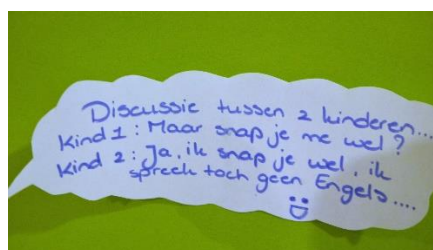 Discussie tussen 2 kinderen...
Kind 1: Maar snap je me wel?
Kind 2: Ja, ik snap je wel, ik
spreek toch geen Engels....